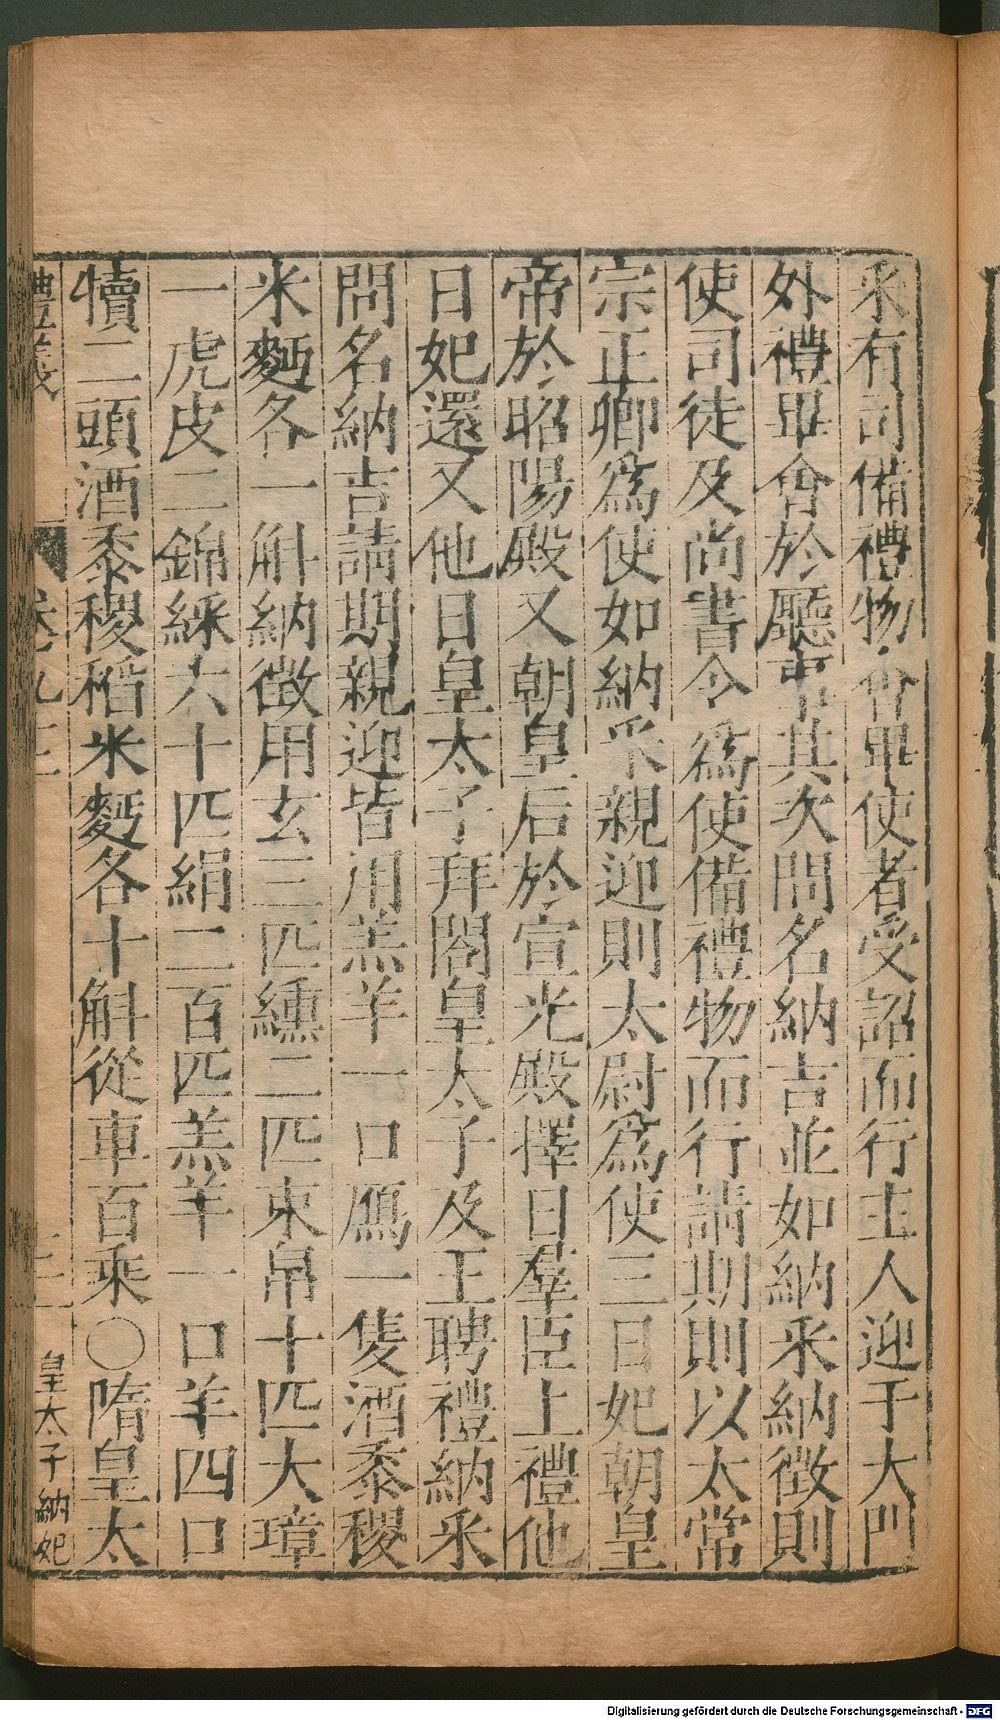 采有司備禮物會畢使者受詔而行主人迎于大門
外禮畢會於廳事其次問名納吉並如納采納徵則
使司徒及尚書令為使備禮物而行請期則以太常
宗正卿為使如納采親迎則太尉為使三日妃朝皇
帝於昭陽殿又朝皇后於宣光殿擇日羣臣上禮他
日妃還又他日皇太子拜閤皇太子及王聘禮納采
問名納吉請期親迎皆用羔羊一口鴈一隻酒黍稷
米麵各一斛納徵用玄三匹纁二匹束帛十匹大璋
一虎皮二錦綵六十匹絹二百匹羔羊一口羊四口
犢二頭酒黍稷稻米麵各十斛從車百乘○隋皇太
禮義 卷九三 三 皇太子納妃
Digitalisierung gefördert durch die Deutsche Forschungsgemeinschaft - DFG